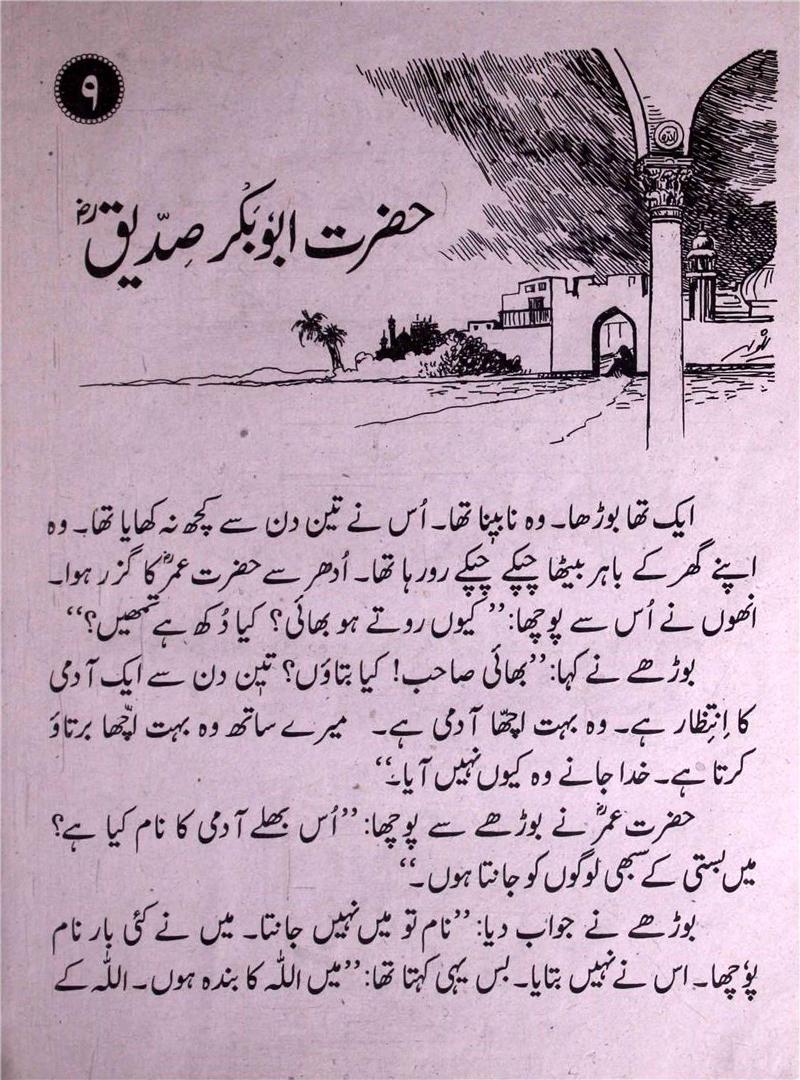 ۹
حضرت ابوبکر صدّیقؓ
ایک تھا بوڑھا۔ وہ نابینا تھا۔ اُس نے تین دن سے کچھ نہ کھایا تھا۔ وہ
اپنے گھر کے باہر بیٹھا چپکے چپکے رو رہا تھا۔ اُدھر سے حضرت عمرؓ کا گزر ہوا۔
انھوں نے اُس سے پوچھا: ’’کیوں روتے ہو بھائی؟ کیا دُکھ ہے تمھیں؟‘‘
بوڑھے نے کہا: ’’بھائی صاحب! کیا بتاؤں؟ تین دن سے ایک آدمی
کا اِنتِظار ہے۔ وہ بہت اچھّا آدمی ہے۔ میرے ساتھ وہ بہت اچّھا برتاؤ
کرتا ہے۔ خدا جانے وہ کیوں نہیں آیا۔‘‘
حضرت عمرؓ نے بوڑھے سے پوچھا: ’’اُس بھلے آدمی کا نام کیا ہے؟
میں بستی کے سبھی لوگوں کو جانتا ہوں۔‘‘
بوڑھے نے جواب دیا: ’’نام تو میں نہیں جانتا۔ میں نے کئی بار نام
پوٗچھا۔ اس نے نہیں بتایا۔ بس یہی کہتا تھا: ’’میں اللہ کا بندہ ہوں۔ اللہ کے